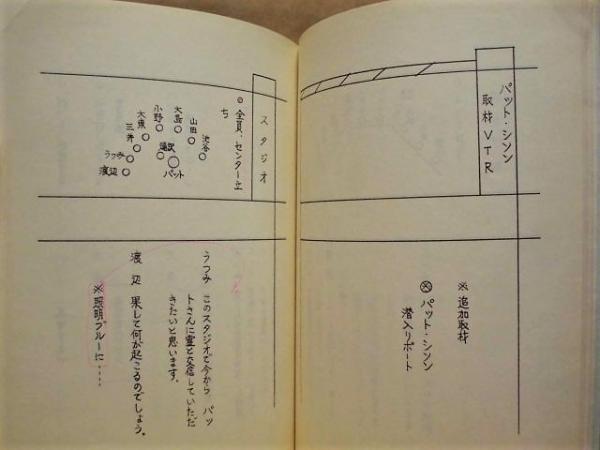 パット・シソン
取材VTR
※ 追加取材
㊕ パット・シソン
潜入リポート
スタジオ
◎ 全員、センター立
ち
池谷
山田
大島
小野
大康
三井
うつみ
渡辺
湯沢
パット
うつみ このスタジオで今から、パッ
トさんに霊と交信していただ
きたいと思います。
渡 辺 果して何が起こるのでしょう。
※照明ブルーに‥‥